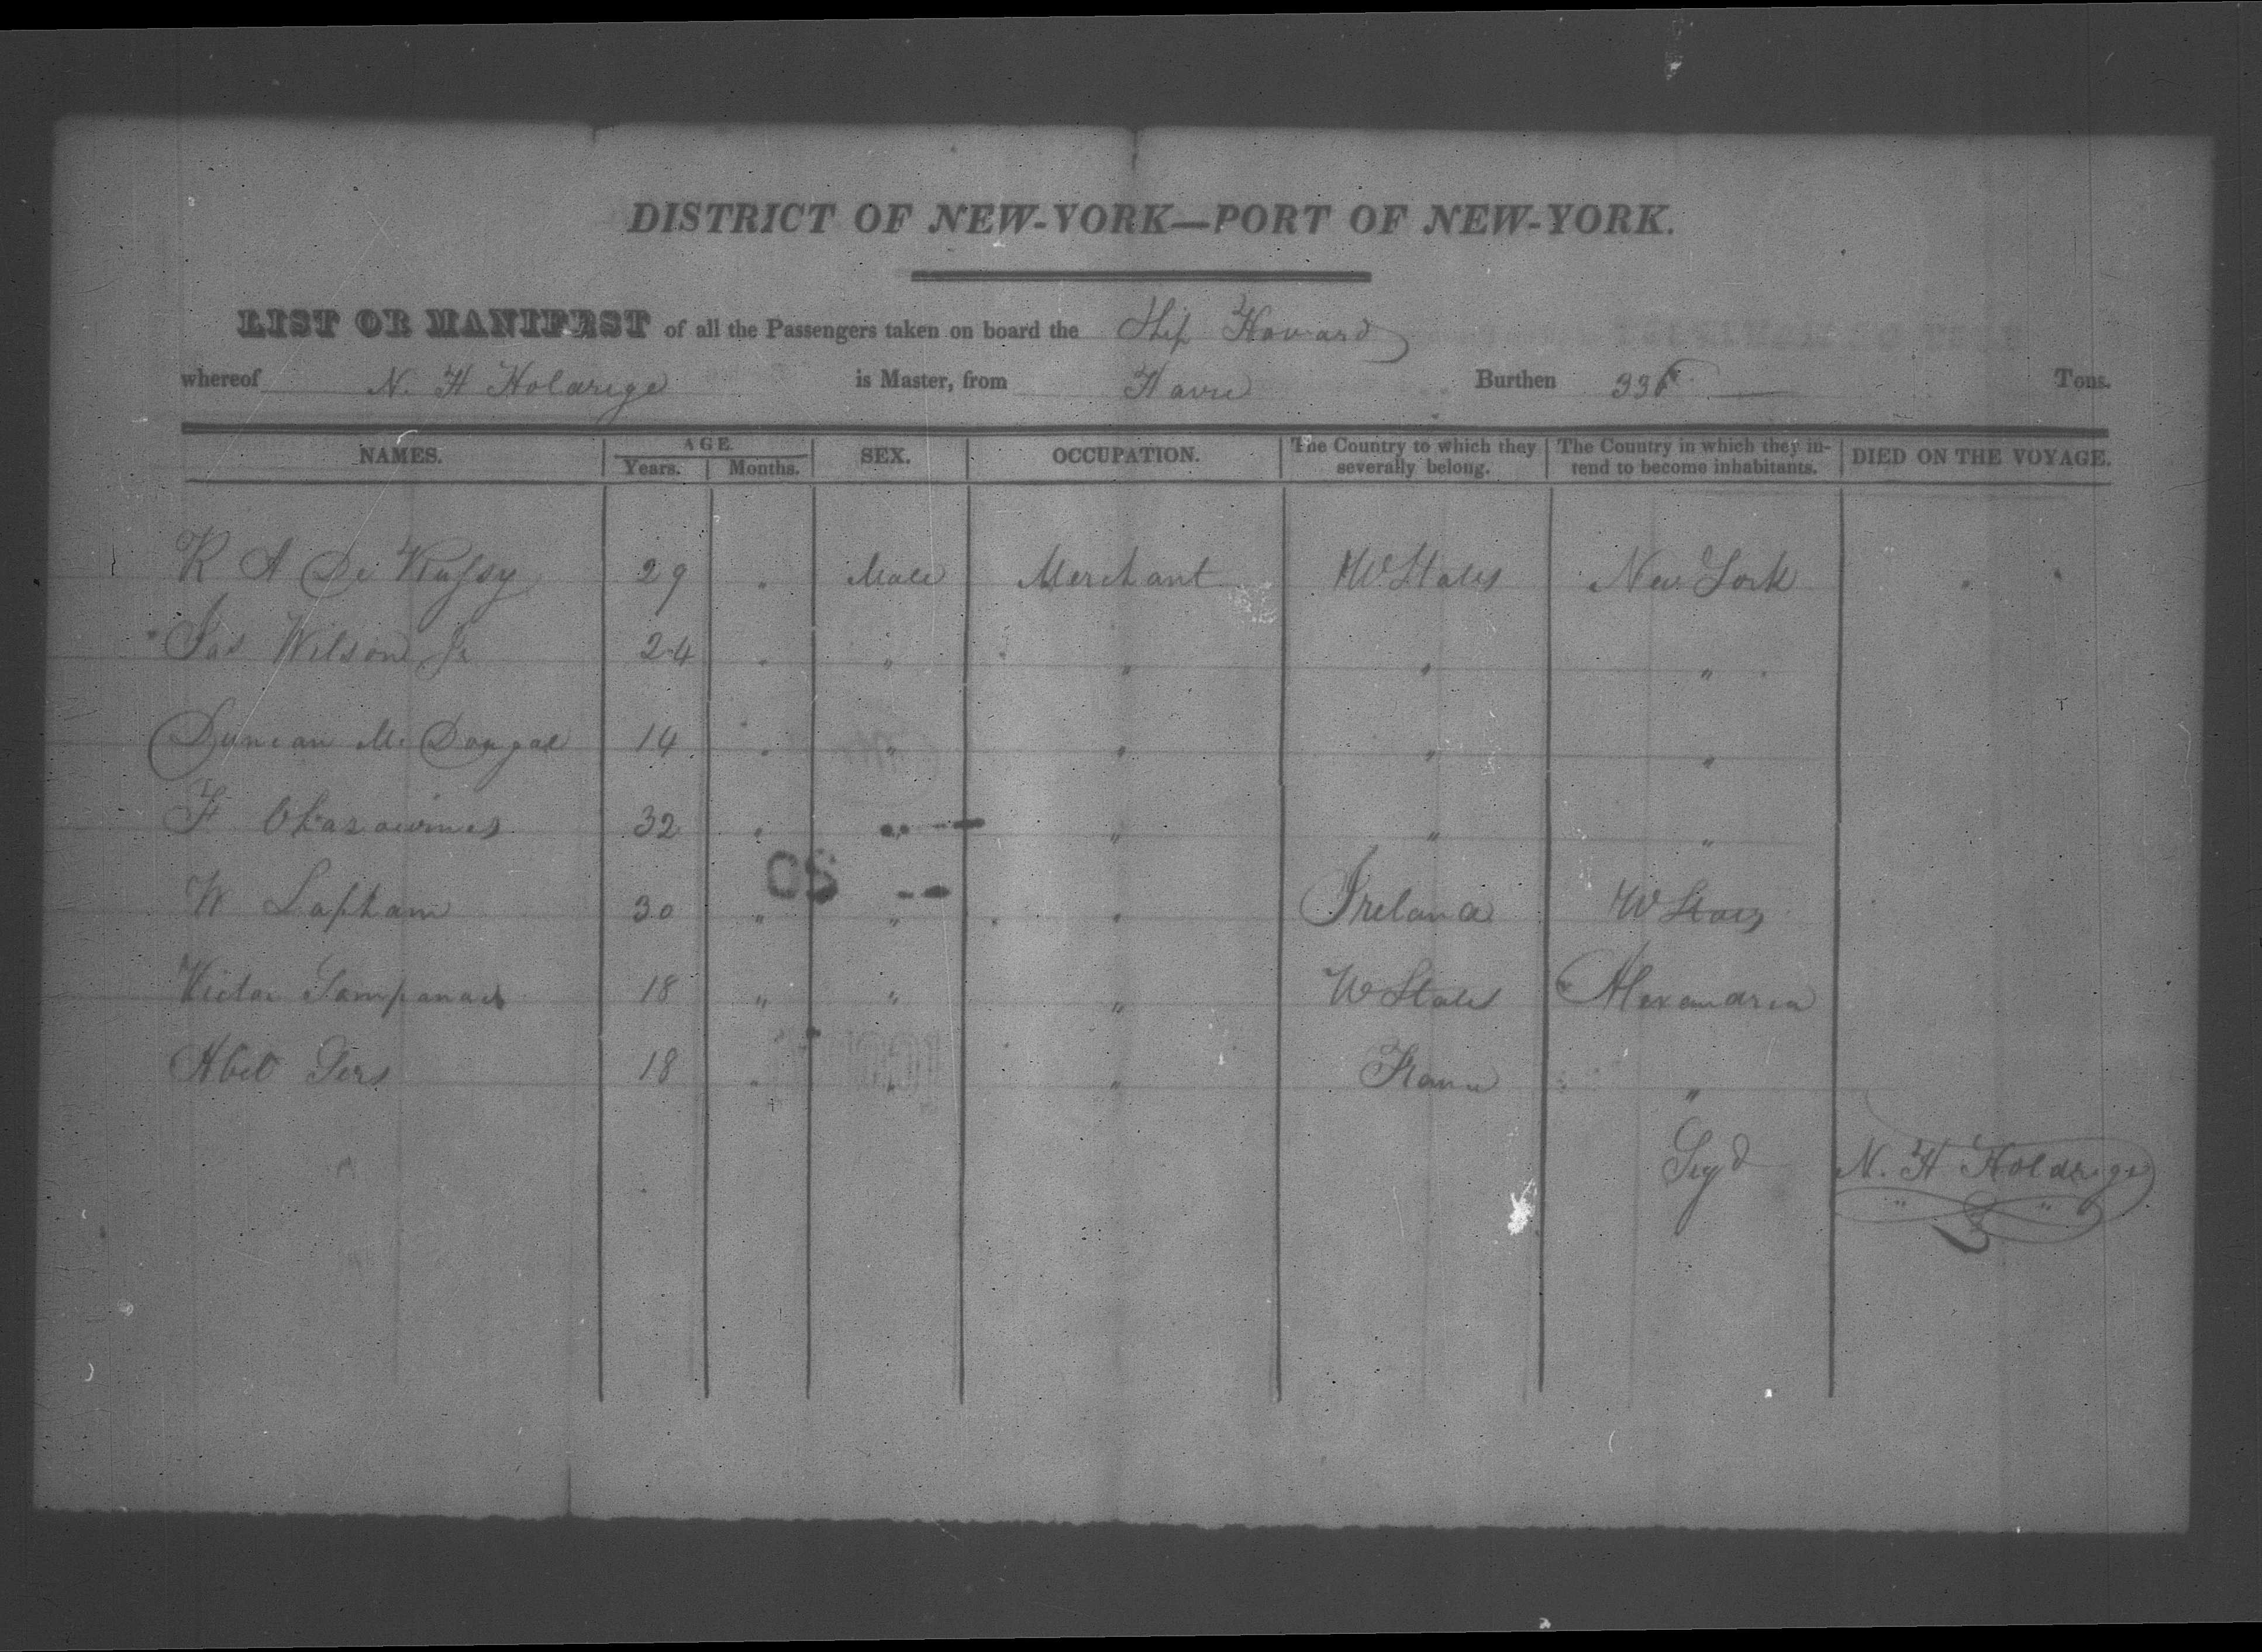 DISTRICT OF NEW-YORK—PORT OF NEW-YORK.
LIST OR MANIFEST of all the Passengers taken on board the Ship Howard
whereof N. H Holdrege is Master, from Havre Burthen 338 Tons.
NAMES. AGE. Years. Months. SEX. OCCUPATION. The Country to which they severally belong. The Country in which they intend to become inhabitants. DIED ON THE VOYAGE.
R A De Russy 29 " Male Merchant U States New York
Jas Wilson Jr 24 " " " " "
Duncan Mc Dougal 14 " " " " "
F 32 " " " " "
W Lapham 30 " " " Ireland U States
Victor 18 " " " U States Alexandria
Abel 18 " " " France "
Sigd N. H Holdrege